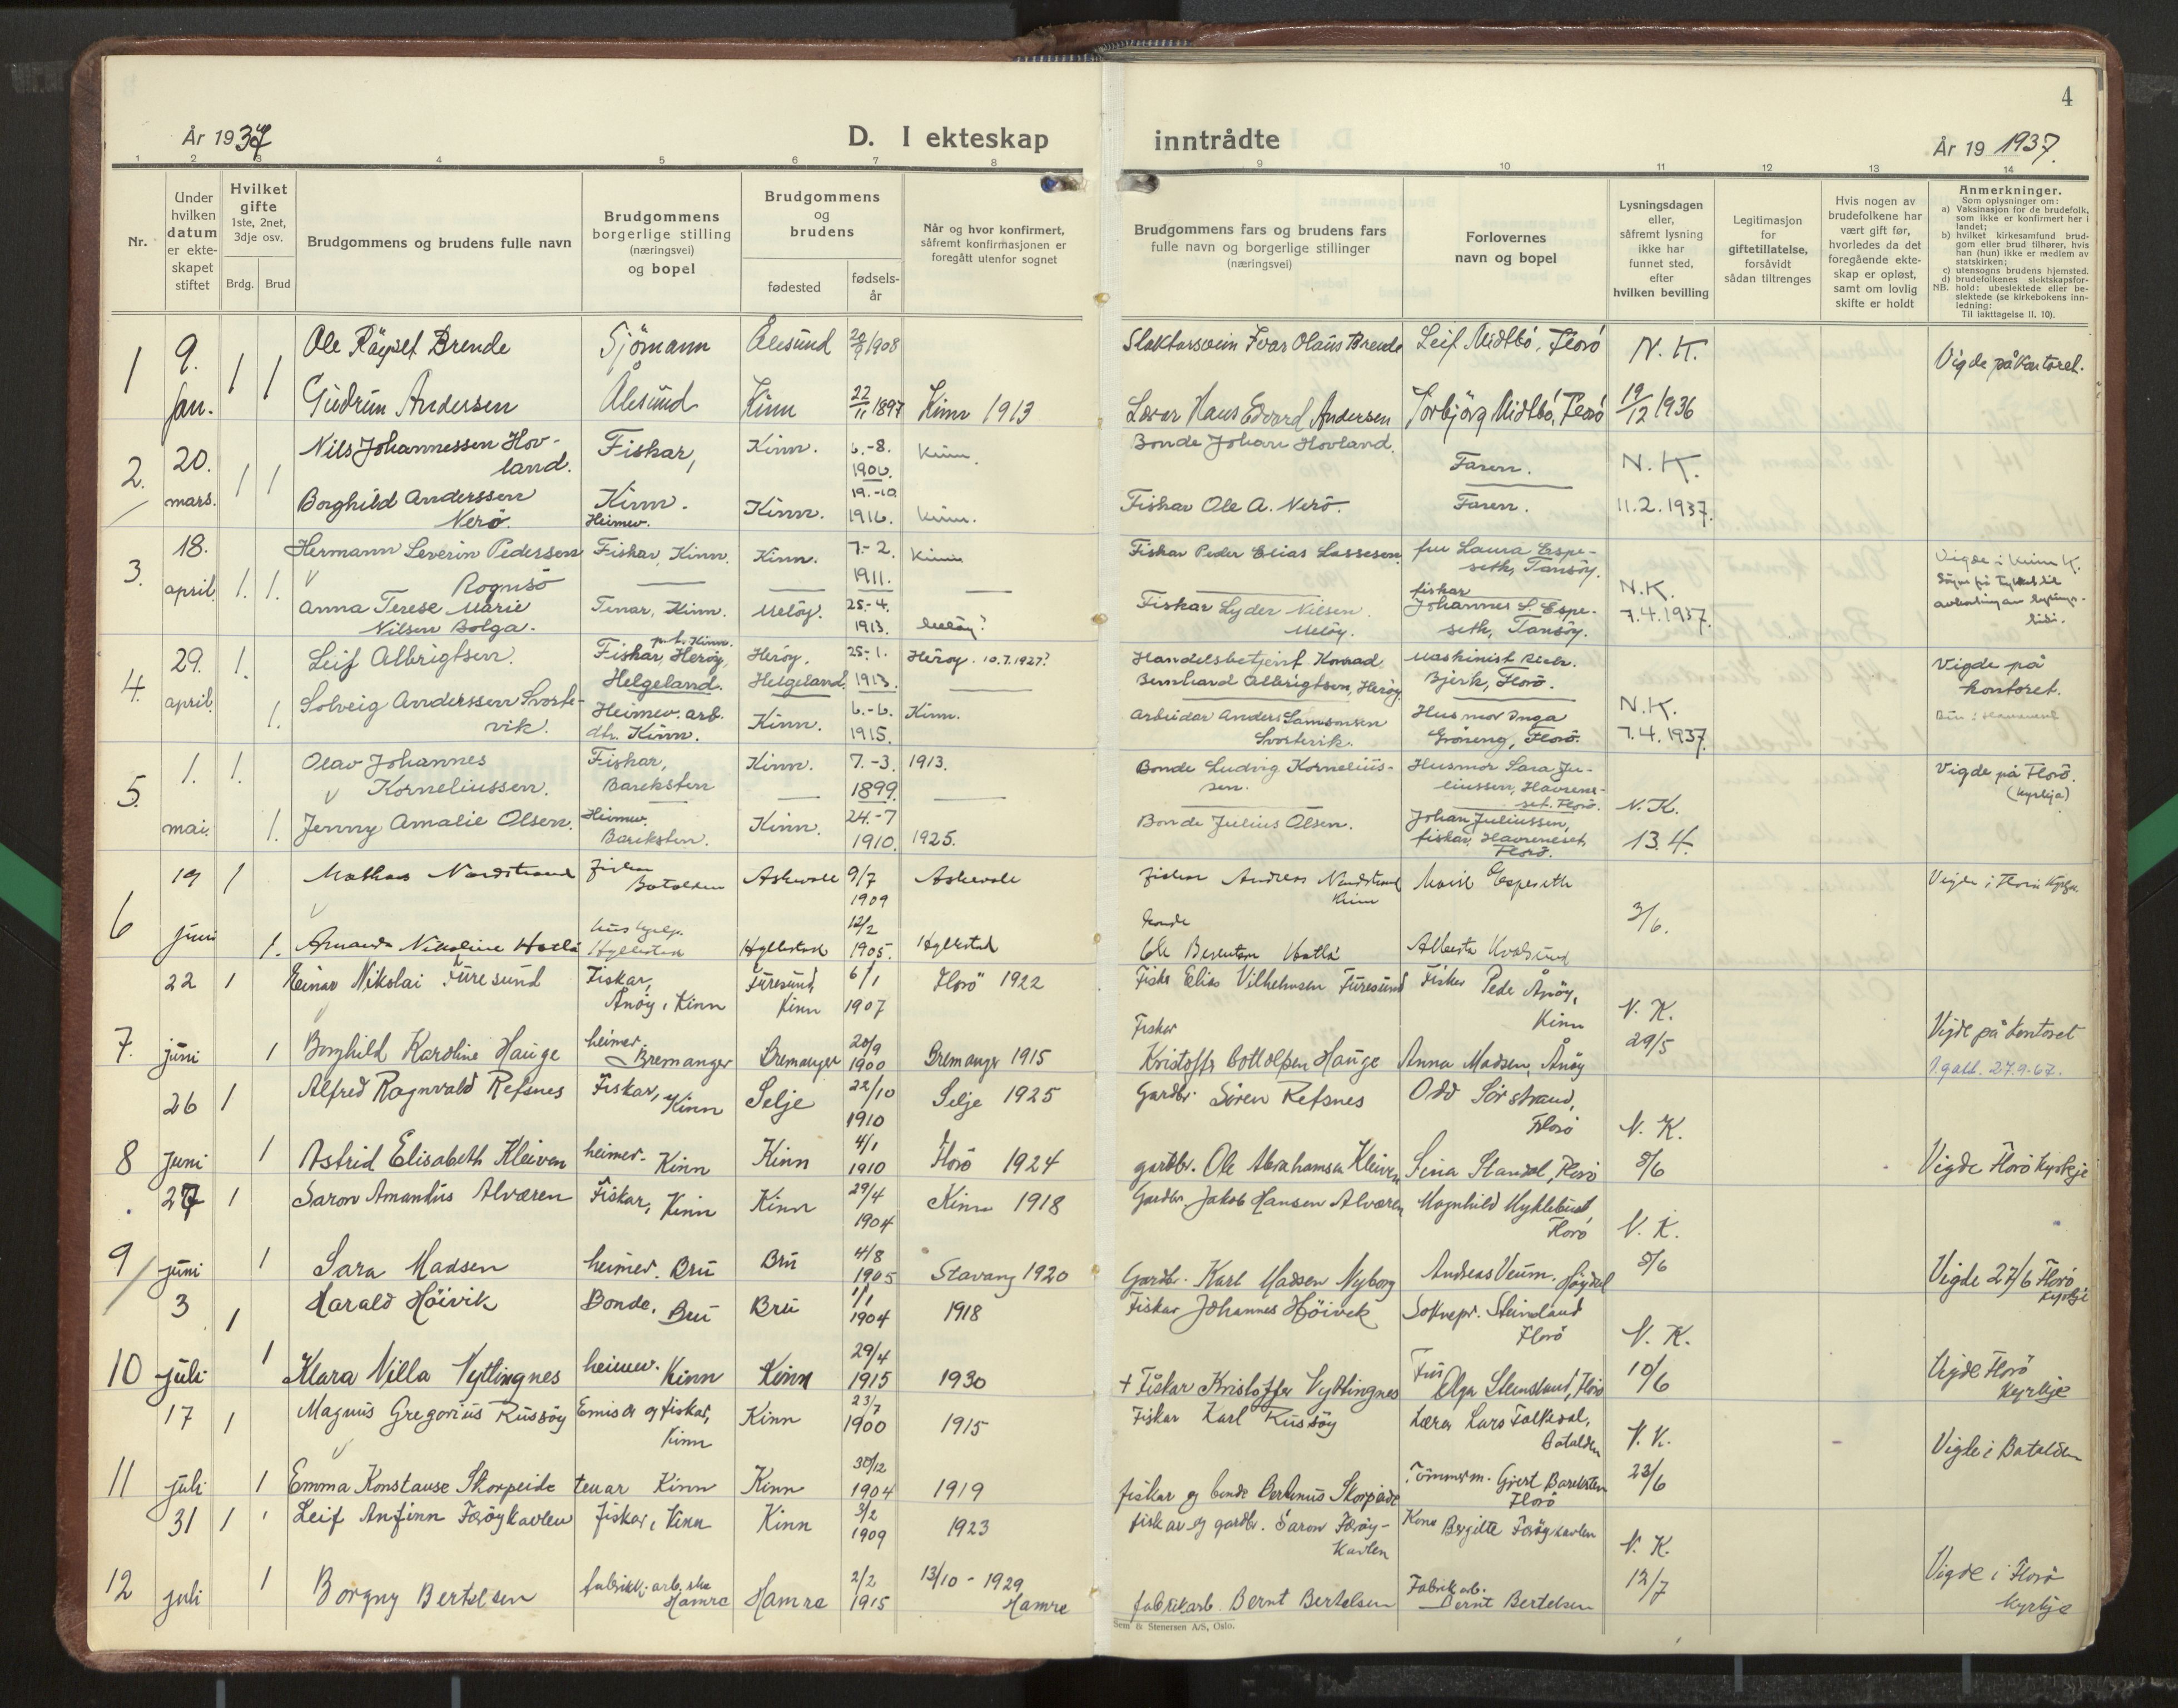 4
År 1937
D. I ekteskap
inntrådte
År 19 1937.
1 2 3 4 5 6 7 8 9 10 11 12 13 14
Nr.
Under hvilken datum er ekteskapet stiftet
Hvilket gifte 1ste, 2net, 3dje osv.
Brdg. Brud
Brudgommens og brudens fulle navn
Brudgommens borgerlige stilling (næringsvei) og bopel
Brudgommens og brudens
fødested
fødselsår
Når og hvor konfirmert, såfremt konfirmasjonen er foregått utenfor sognet
Brudgommens fars og brudens fars fulle navn og borgerlige stillinger (næringsvei)
Forlovernes navn og bopel
Lysningsdagen eller, såfremt lysning ikke har funnet sted, efter hvilken bevilling
Legitimasjon for giftetillatelse, forsåvidt sådan tiltrenges
Hvis nogen av brudefolkene har vært gift før, hvorledes da det foregående ekteskap er opløst, samt om lovlig skifte er holdt
Anmerkninger.
Som oplysninger om:
a) Vaksinasjon for de brudefolk, som ikke er konfirmert her i landet;
b) hvilket kirkesamfund brudgom eller brud tilhører, hvis han (hun) ikke er medlem av statskirken;
c) utensogns brudens hjemsted.
d) brudefolkenes slektskapsforhold: ubeslektede eller beslektede (se kirkebokens innledning:
NB.
Til iakttagelse II. 10).
1 9. 1 Ole Brende Sjömann Ålesund 1908 Slaktarsvein Ivar Olaus Brende Leif Midlbö, Florö N. K. Vigde på kontoret.
jan. 1 Gudrun Andersen Ålesund Kinn 22/11 1897 Kinn 1913 Hans Edvard Andersen Torbjörg Midlbö, Florö 19/12 1936
2. 20. 1 1 Nils Johannessen Hovland. Fiskar, Kinn. 6.-8. 1906. Kinn. Bonde Johan Hovland. Faren. N. K.
mars. Borghild Anderssen Nerö. Kinn. Heimev. Kinn. 19.-10 1916. Kinn. Fiskar Ole A. Nerö. Faren. 11.2.1937.
3. 18. 1. 1. Hermann Severin Pederssen Rognsö Fiskar, Kinn. Kinn. 7.-2. 1911. Kinn Fiskar Peder Elias Lassesen fru Laura Espeseth, Tansöy. Vigde i Kinn K.
april. Anna Terese Marie Nilsen Bolga. Tenar, Kinn. Melöy. 25.-4. 1913. Melöy? Fiskar Lyder Nilsen. Melöy. fiskar Johannes S. Espeseth, Tansöy. N.K. 7.4.1937.
4. 29. 1. Leif Albrigtsen. Fiskar, p.t. Kinn. Heröy, Helgeland. Heröy. Helgeland. 25.-1. 1913. Heröy. 10.7.1927? Handelsbetjent Konrad Bernhard Albrigtsen, Heröy. Maskinist Bjerk, Florö. Vigde på kontoret.
april. 1. Solveig Anderssen Svortevik. Heimev. arb. dtr. Kinn. Kinn. 6.-6. 1915. Kinn. Arbeidar Anders Samsonsen Svortevik. Husmor Inga Gröneng, Florö. N.K. 7.4.1937.
5. 1. 1. Olav Johannes Korneliussen. Fiskar, Bareksten Kinn. 7.-3. 1899. 1913. Bonde Ludvig Korneliussen. Husmor Sara Juliussen, Havreneset. Florö. Vigde på Florö. (Kyrkja)
mai. 1. Jenny Amalie Olsen. Heimev. Bareksten. Kinn. 24.-7 1910. 1925. Bonde Julius Olsen. Johan Juliussen, fiskar, Havreneset Florö. N.K. 13.4.
6 19 1 Mathias Nordstrand Fiskar Batalden Askvoll 9/7 1909 Askvoll Fiskar Andreas Nordstrand Kinn Espeseth Vigde i Florö Kyrkje
juni 1. Amanda Nikoline Hatle hushjelp. Hyllestad Hyllestad 12/2 1905. Hyllestad Bonde Ole Berentsen Hatle Alberta Kvalsund 3/6.
7. 22 1 Einar Nikolai Furesund Fiskar, Ånöy, Kinn Furesund Kinn 6/1 1907 Florö 1922 Fiskar Elias Vilhelmsen Furesund Fisker Pede Ånöy, Kinn N. K.
juni 1 Borghild Karoline Hauge heimev. Bremanger Bremanger 20/9 1900 Bremanger 1915 Fiskar Kristoffer Hauge Anna Madsen, Ånöy 29/5 Vigde på kontoret
27.9.67.
8 26 1 Alfred Ragnvald Refsnes Fiskar, Kinn Selje 22/10 1910 Selje 1925 Gardbr. Sören Refsnes Odd Sörstrand, Florö N. K.
juni 1 Astrid Elisabeth Kleiven heimev. Kinn Kinn 4/1 1910 Florö 1924 gardbr. Ole Abrahamsen Kleiven Sina Standal, Florö 5/6 Vigde Florö Kyrkje
9 27 1 Saron Amandus Alværen Fiskar, Kinn Kinn 29/4 1904 Kinn 1918 Gardbr. Jakob Hansen Alværen Magnhild Myklebust Florö N. K.
juni 1 Sara Madsen heimev. Bru Bru 4/8 1905 Stavang 1920 Gardbr. Karl Madsen Nyborg Andreas Veum. Höydal 5/6 Vigde 27/6 Florö kyrkje
10 3 1 Harald Höivik Bonde, Bru Bru 1/1 1904 1918 Fiskar Johannes Höivik Soknepr. Steinsland Florö N. K.
juli 1 Klara Villa Vyttingnes heimev. Kinn Kinn 29/4 1915 1930 + Fiskar Kristoffer Vyttingnes Fru Olga Steinsland, Florö 10/6 Vigde Florö Kyrkje
11 17 1 Magnus Gregorius Russöy Emisær og fiskar, Kinn Kinn 23/7 1900 1915 Fiskar Karl Russöy Lærer Lars Batalden N. K. Vigde i Batalden
juli 1 Emma Konstanse Skorpeide tenar Kinn Kinn 30/12 1904 1919 fiskar og bonde Skorpeide Tömmerm. Gjert Bareksten Florö 23/6
12 31 1 Leif Anfinn Færöykavlen fiskar, Kinn Kinn 3/2 1909 1923 fiskar og gardbr. Saron Færöykavlen Kona Bergitte Færöykavlen N. K.
juli 1 Borgny Bertelsen fabrikkarb.ske Hamre Hamre 2/2 1915 13/10 - 1929 Hamre fabrikarb. Bernt Bertelsen Fabrikarb. Bernt Bertelsen 12/7 Vigde i Florö kyrkje
Sem & Stenersen A/S, Oslo.